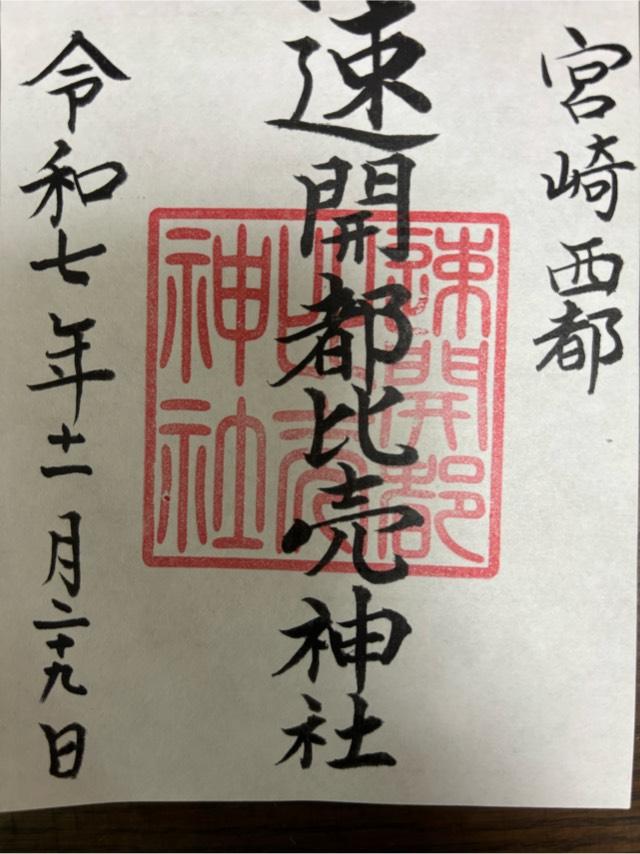 宮崎西都
速開都比売神社
速開都
神社
令和七年十一月二十九日